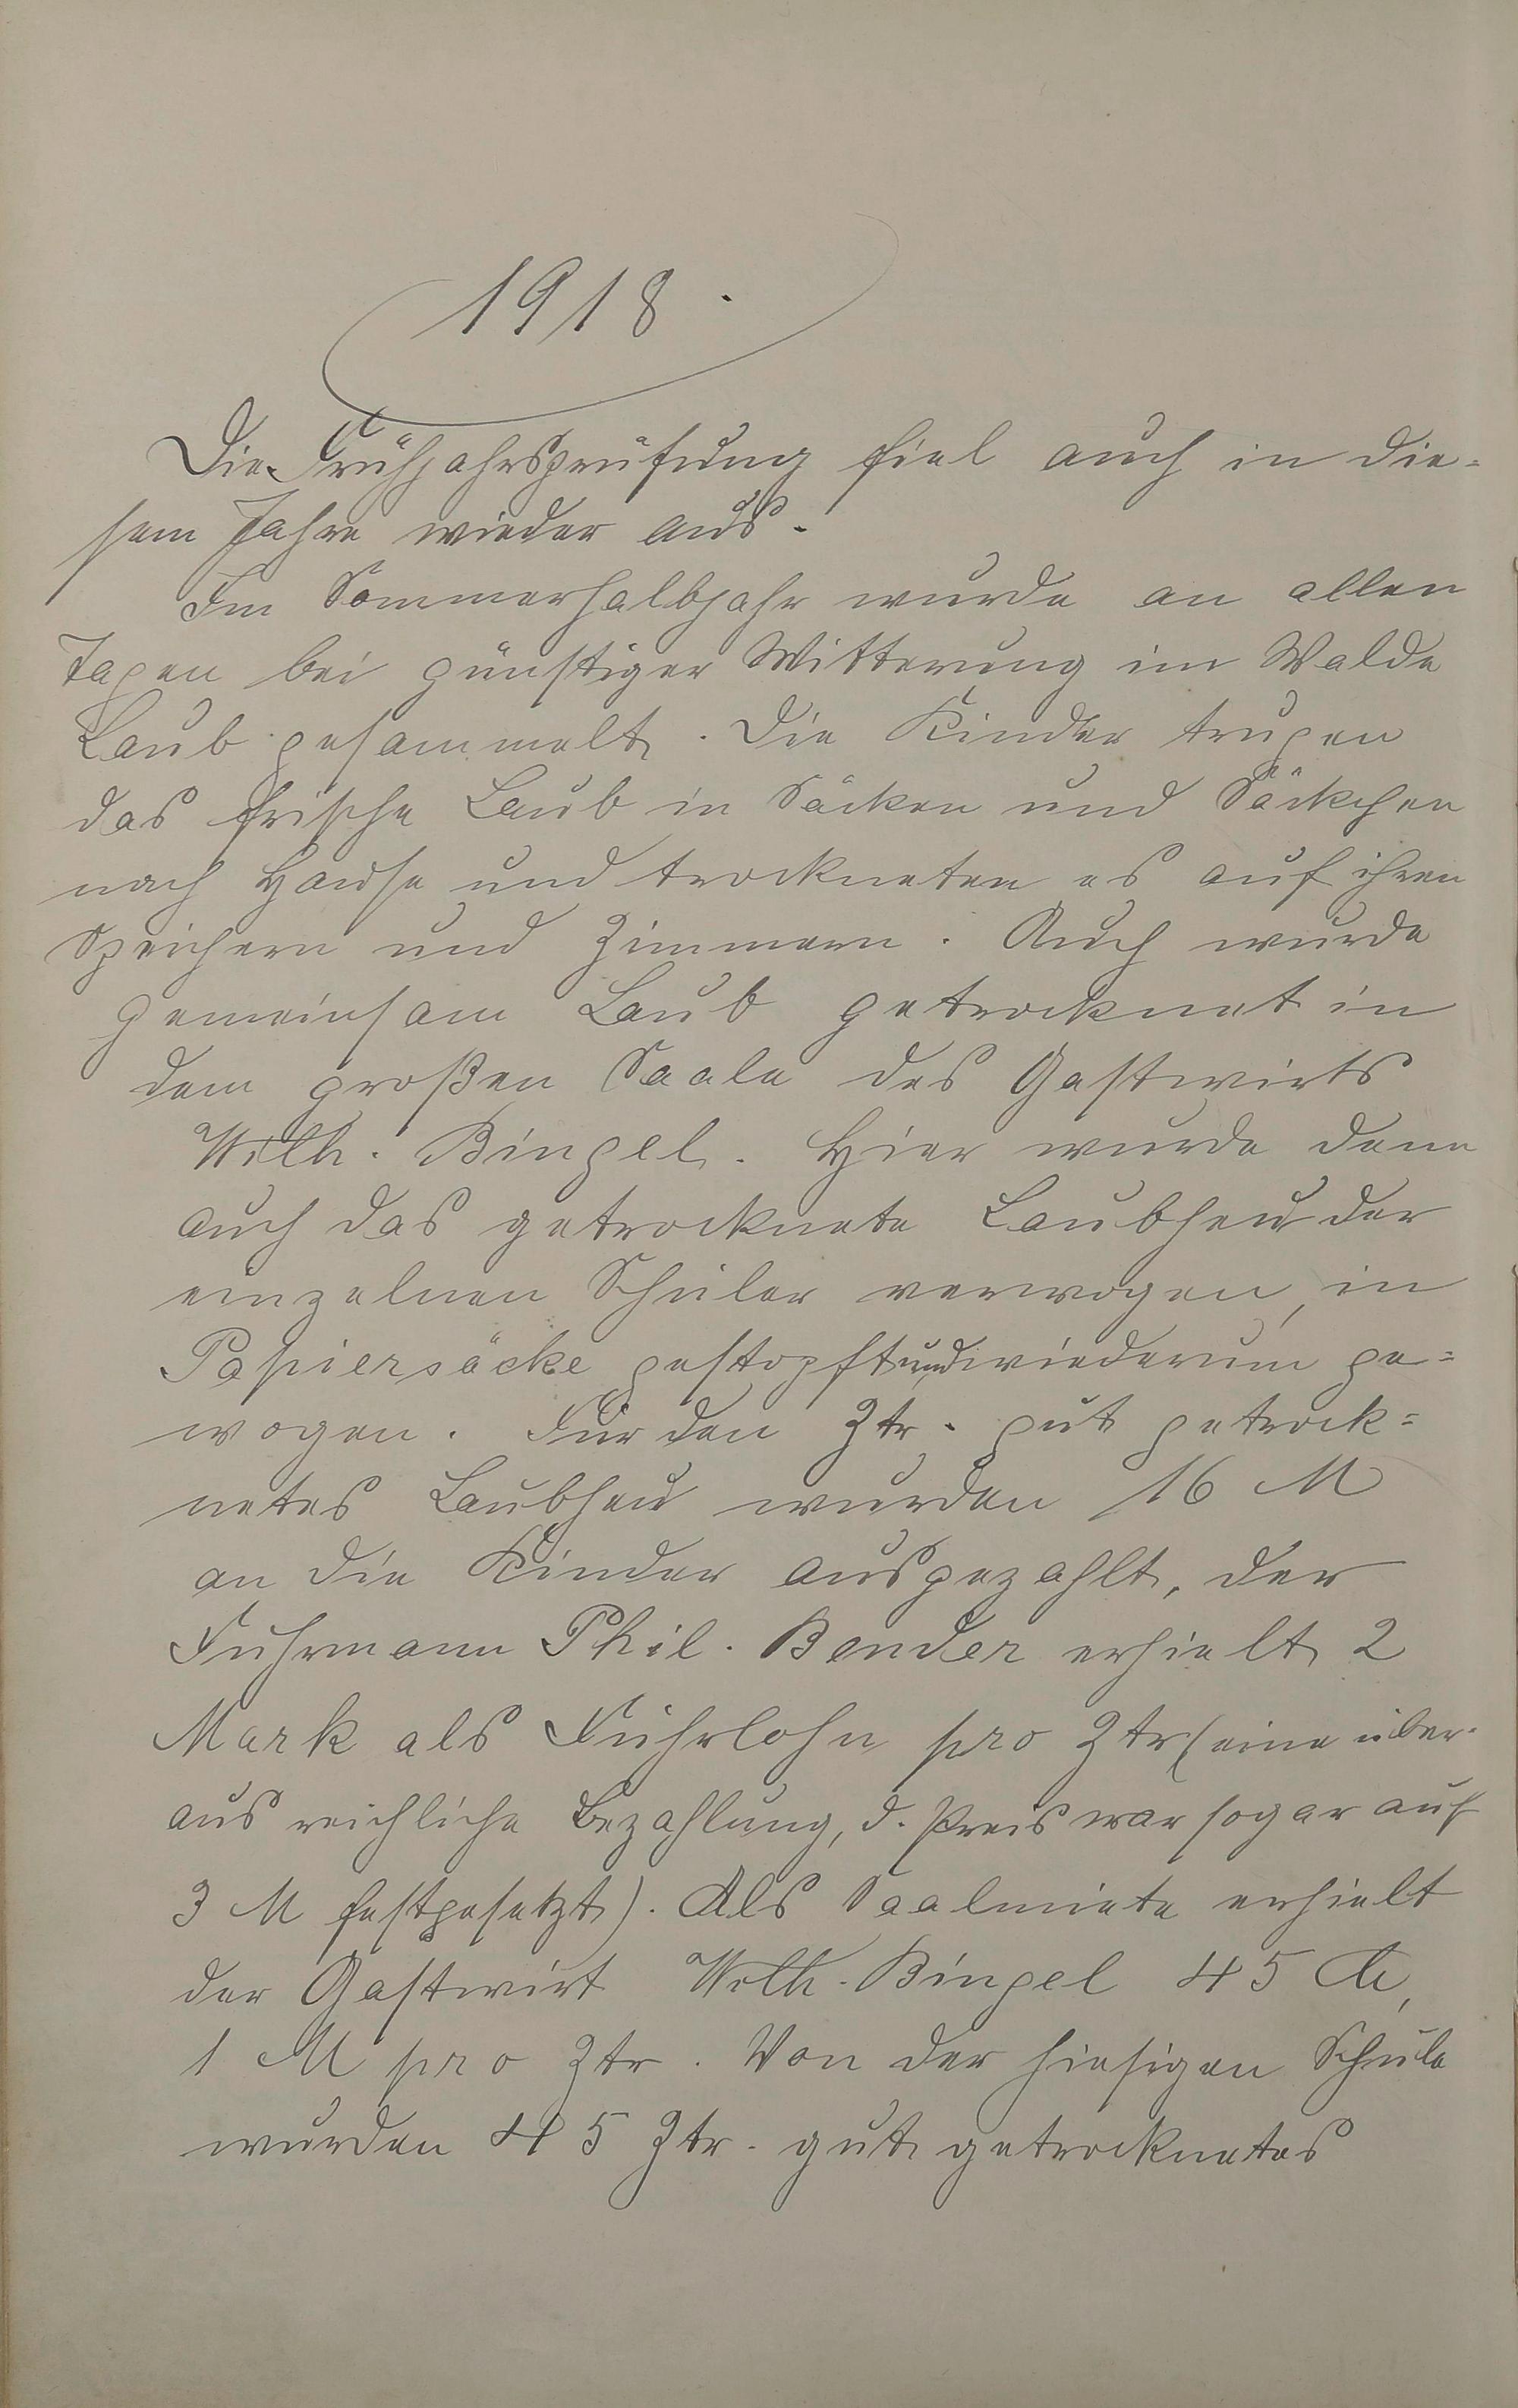 1918.
Die Frühjahrsprüfung fiel auch in die-
sem Jahre wieder aus.
Im Sommerhalbjahr wurde an allen
Tagen bei günstiger Witterung im Walde
Laub gesammelt. Die Kinder trugen
das frische Laub in Säcken und Säckchen
nach Hause und trockneten es auf ihren
Speichern und Zimmern. Auch wurde
gemeinsam Laub getrocknet in
dem großen Saale des Gastwirts
Wilh. Bingel. Hier wurde dann
auch das getrocknete Laubheu der
einzelnen Schüler verwogen, in
Papiersäcke gestopft und wiederum ge=
wogen. Für den Ztr. gut getrock=
netes Laubheu wurden 16 M
an die Kinder ausgezahlt, der
Fuhrmann Phil. Bender erhielt 2
Mark als Fuhrlohn pro Ztr (eine über-
aus reichliche Bezahlung, d. Preis war sogar auf
3 M festgesetzt). Als Saalmiete erhielt
der Gastwirt Wilh. Bingel 45 M,
1 M pro Ztr. Von der hiesigen Schule
wurden 45 Ztr. gut getrocknetes